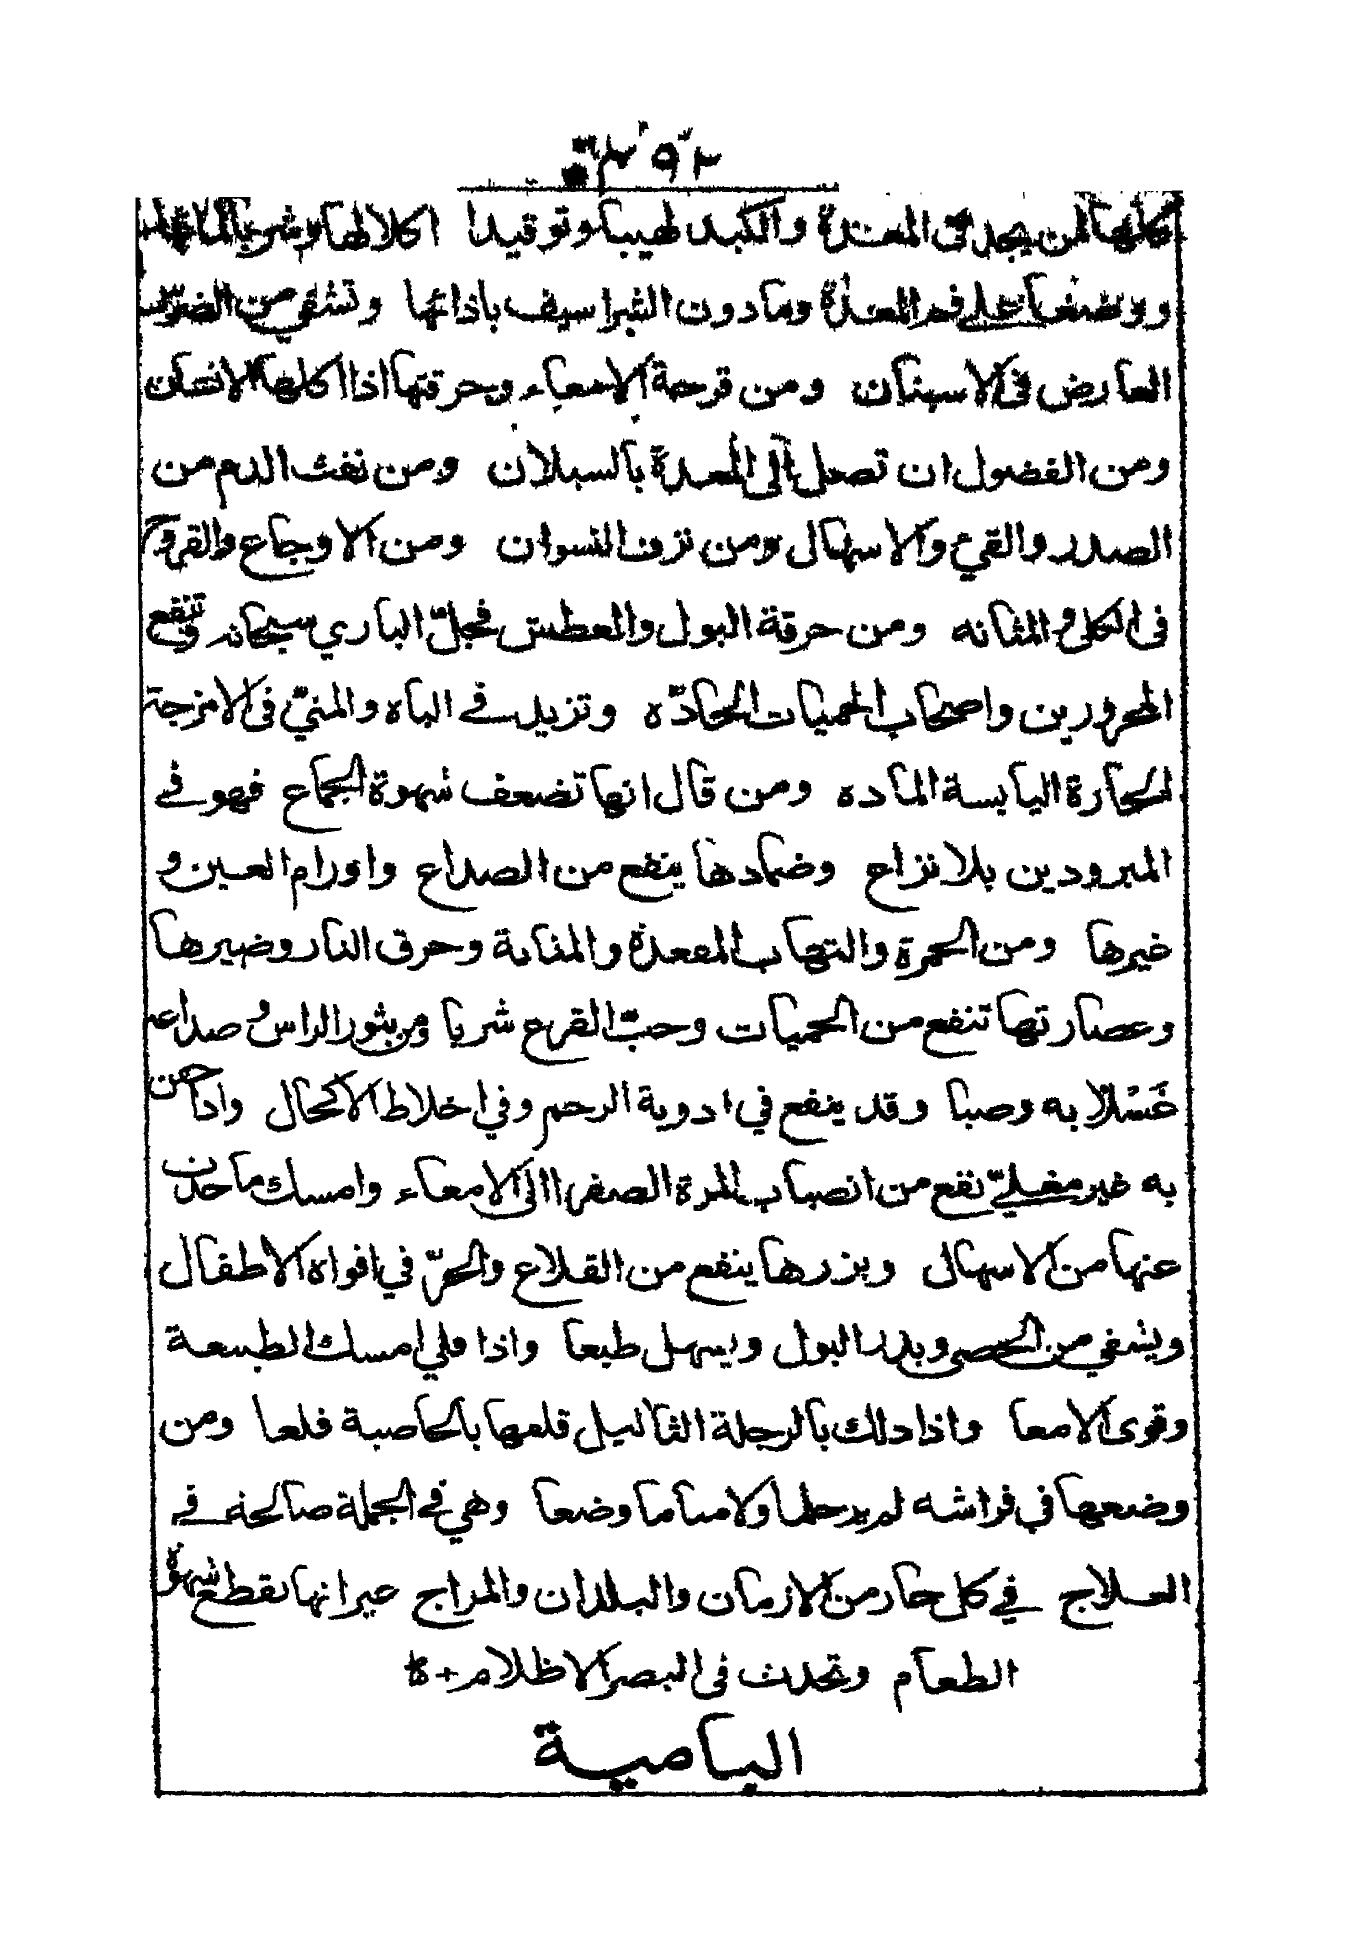 كلها لمن يجد في المعدة والكبد لهيبا وتوقيدا اكلا لها وشربا لمائها
ويوضعها على فم المعدة وما دون الشراسيف باذائها وتشفي من الضرس
العارض في الاسنان ومن قرحة الامعاء وحرقتها اذا اكلها الانسان
ومن الفضول ان تصل الى المعدة بالسيلان ومن نفث الدم من
الصدر والقيء والاسهال ومن نزف النسوان ومن الاوجاع والقروح
في الكلى والمثانه ومن حرقة البول والعطش فجلّ الباري سبحانه وتنفع
المحرورين واصحاب الحميات الحادّه وتزيد في الباه والمنيّ في الامزجة
الحارة اليابسة الماده ومن قال انها تضعف شهوة الجماع فهو في
المبرودين بلا نزاع وضمادها ينفع من الصداع واورام العين و
غيرها ومن الحمرة والتهاب المقعدة والمثانة وحرق النار وضيرها
وعصارتها تنفع من الحميات وحبّ القرع شربا ومن بثور الراس و صداعه
غَسْلا به وصبا وقد ينفع في ادوية الرحم وفي اخلاط الاكحال واذا حقن
به غير مغليّ نفع من انصباب المرة الصفرا الى الامعاء وامسك ما حدث
عنها من الاسهال وبزرها ينفع من القلاع والحرّ في افواه الاطفال
ويشفي من الحصى ويدر البول ويسهل طبعا واذا قلي امسك الطبيعة
وقوى الامعا واذا دلك بالرجلة الثاليل قلعها بالخاصية قلعا ومن
وضعها في فراشه لم ير حلما ولا مناما وضعا وهي في الجملة صالحة في
العلاج في كل حار من الازمان والبلدان والمزاج غير انها تقطع شهوة
الطعام وتحدث في البصر الاظلام
البامية